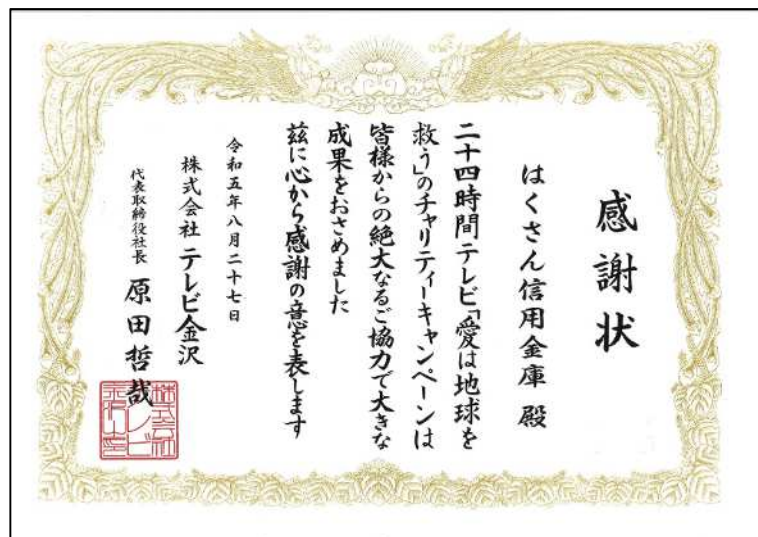 感謝状
はくさん信用金庫 殿
二十四時間テレビ「愛は地球を
救う」のチャリティーキャンペーンは
皆様からの絶大なるご協力で大きな
成果をおさめました
茲に心から感謝の意を表します
令和五年八月二十七日
株式会社 テレビ金沢
代表取締役社長 原田哲哉